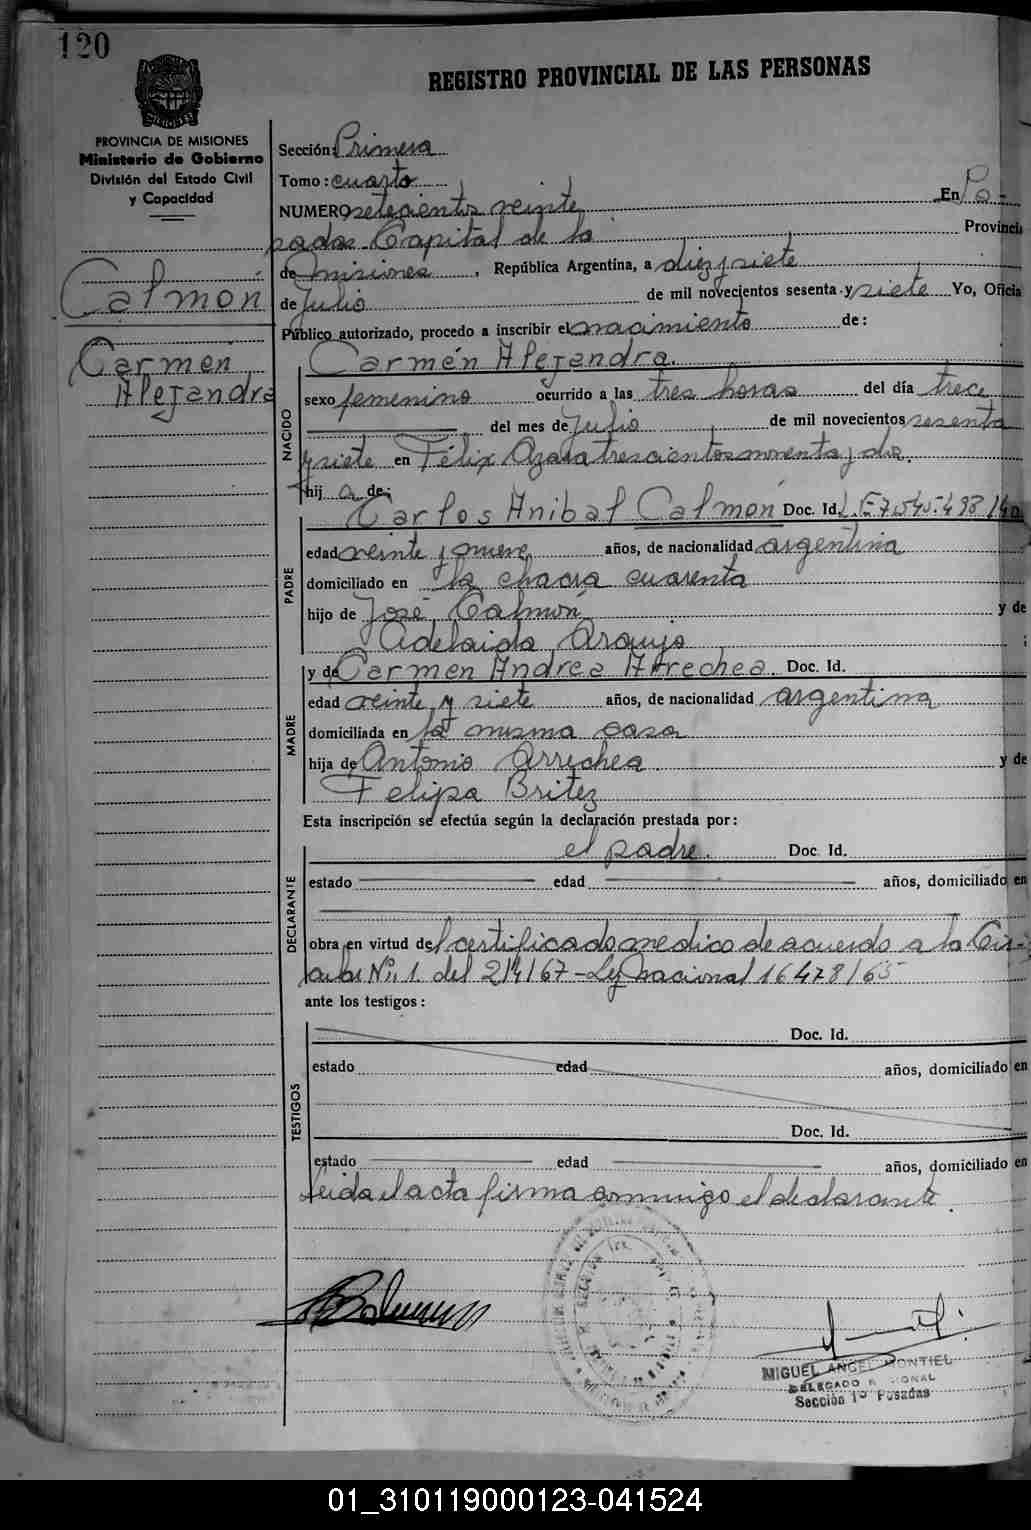 120
REGISTRO PROVINCIAL DE LAS PERSONAS
PROVINCIA DE MISIONES
Ministerio de Gobierno
División del Estado Civil
y Capacidad
Calmón
Carmen
Alejandra
Sección: Primera
Tomo: cuarto
NUMERO setecientos veinte En Po-
sadas Capital de la Provincia
de Misiones, República Argentina, a diez y siete
de Julio de mil novecientos sesenta y siete Yo, Oficia
Público autorizado, procedo a inscribir el nacimiento de:
NACIDO
Carmén Alejandra.
sexo femenino ocurrido a las tres horas del día trece
del mes de Julio de mil novecientos sesenta
y siete en Félix Azara trescientos noventa y dos.
hij a de:
PADRE
Carlos Anibal Calmón Doc. Id. L.E. 7.545.493
edad veinte y nueve años, de nacionalidad argentina
domiciliado en la chacra cuarenta
hijo de José Calmón y de
Adelaida Araujo
MADRE
y de Carmen Andrea Arrechea. Doc. Id.
edad veinte y siete años, de nacionalidad argentina
domiciliada en la misma casa
hija de Antonio Arrechea y de
Felipa Britez
Esta inscripción se efectúa según la declaración prestada por:
DECLARANTE
el padre. Doc. Id.
estado edad años, domiciliado en
obra en virtud del certificado medico de acuerdo a la Cir-
cular Nº 1. del 2/4/67 - Ley Nacional 16478/65
ante los testigos:
TESTIGOS
Doc. Id.
estado edad años, domiciliado en
Doc. Id.
estado edad años, domiciliado en
Leida el acta firma conmigo el declarante.
MIGUEL ANGEL MONTIEL
DELEGADO
Sección 1º Posadas
01_310119000123-041524